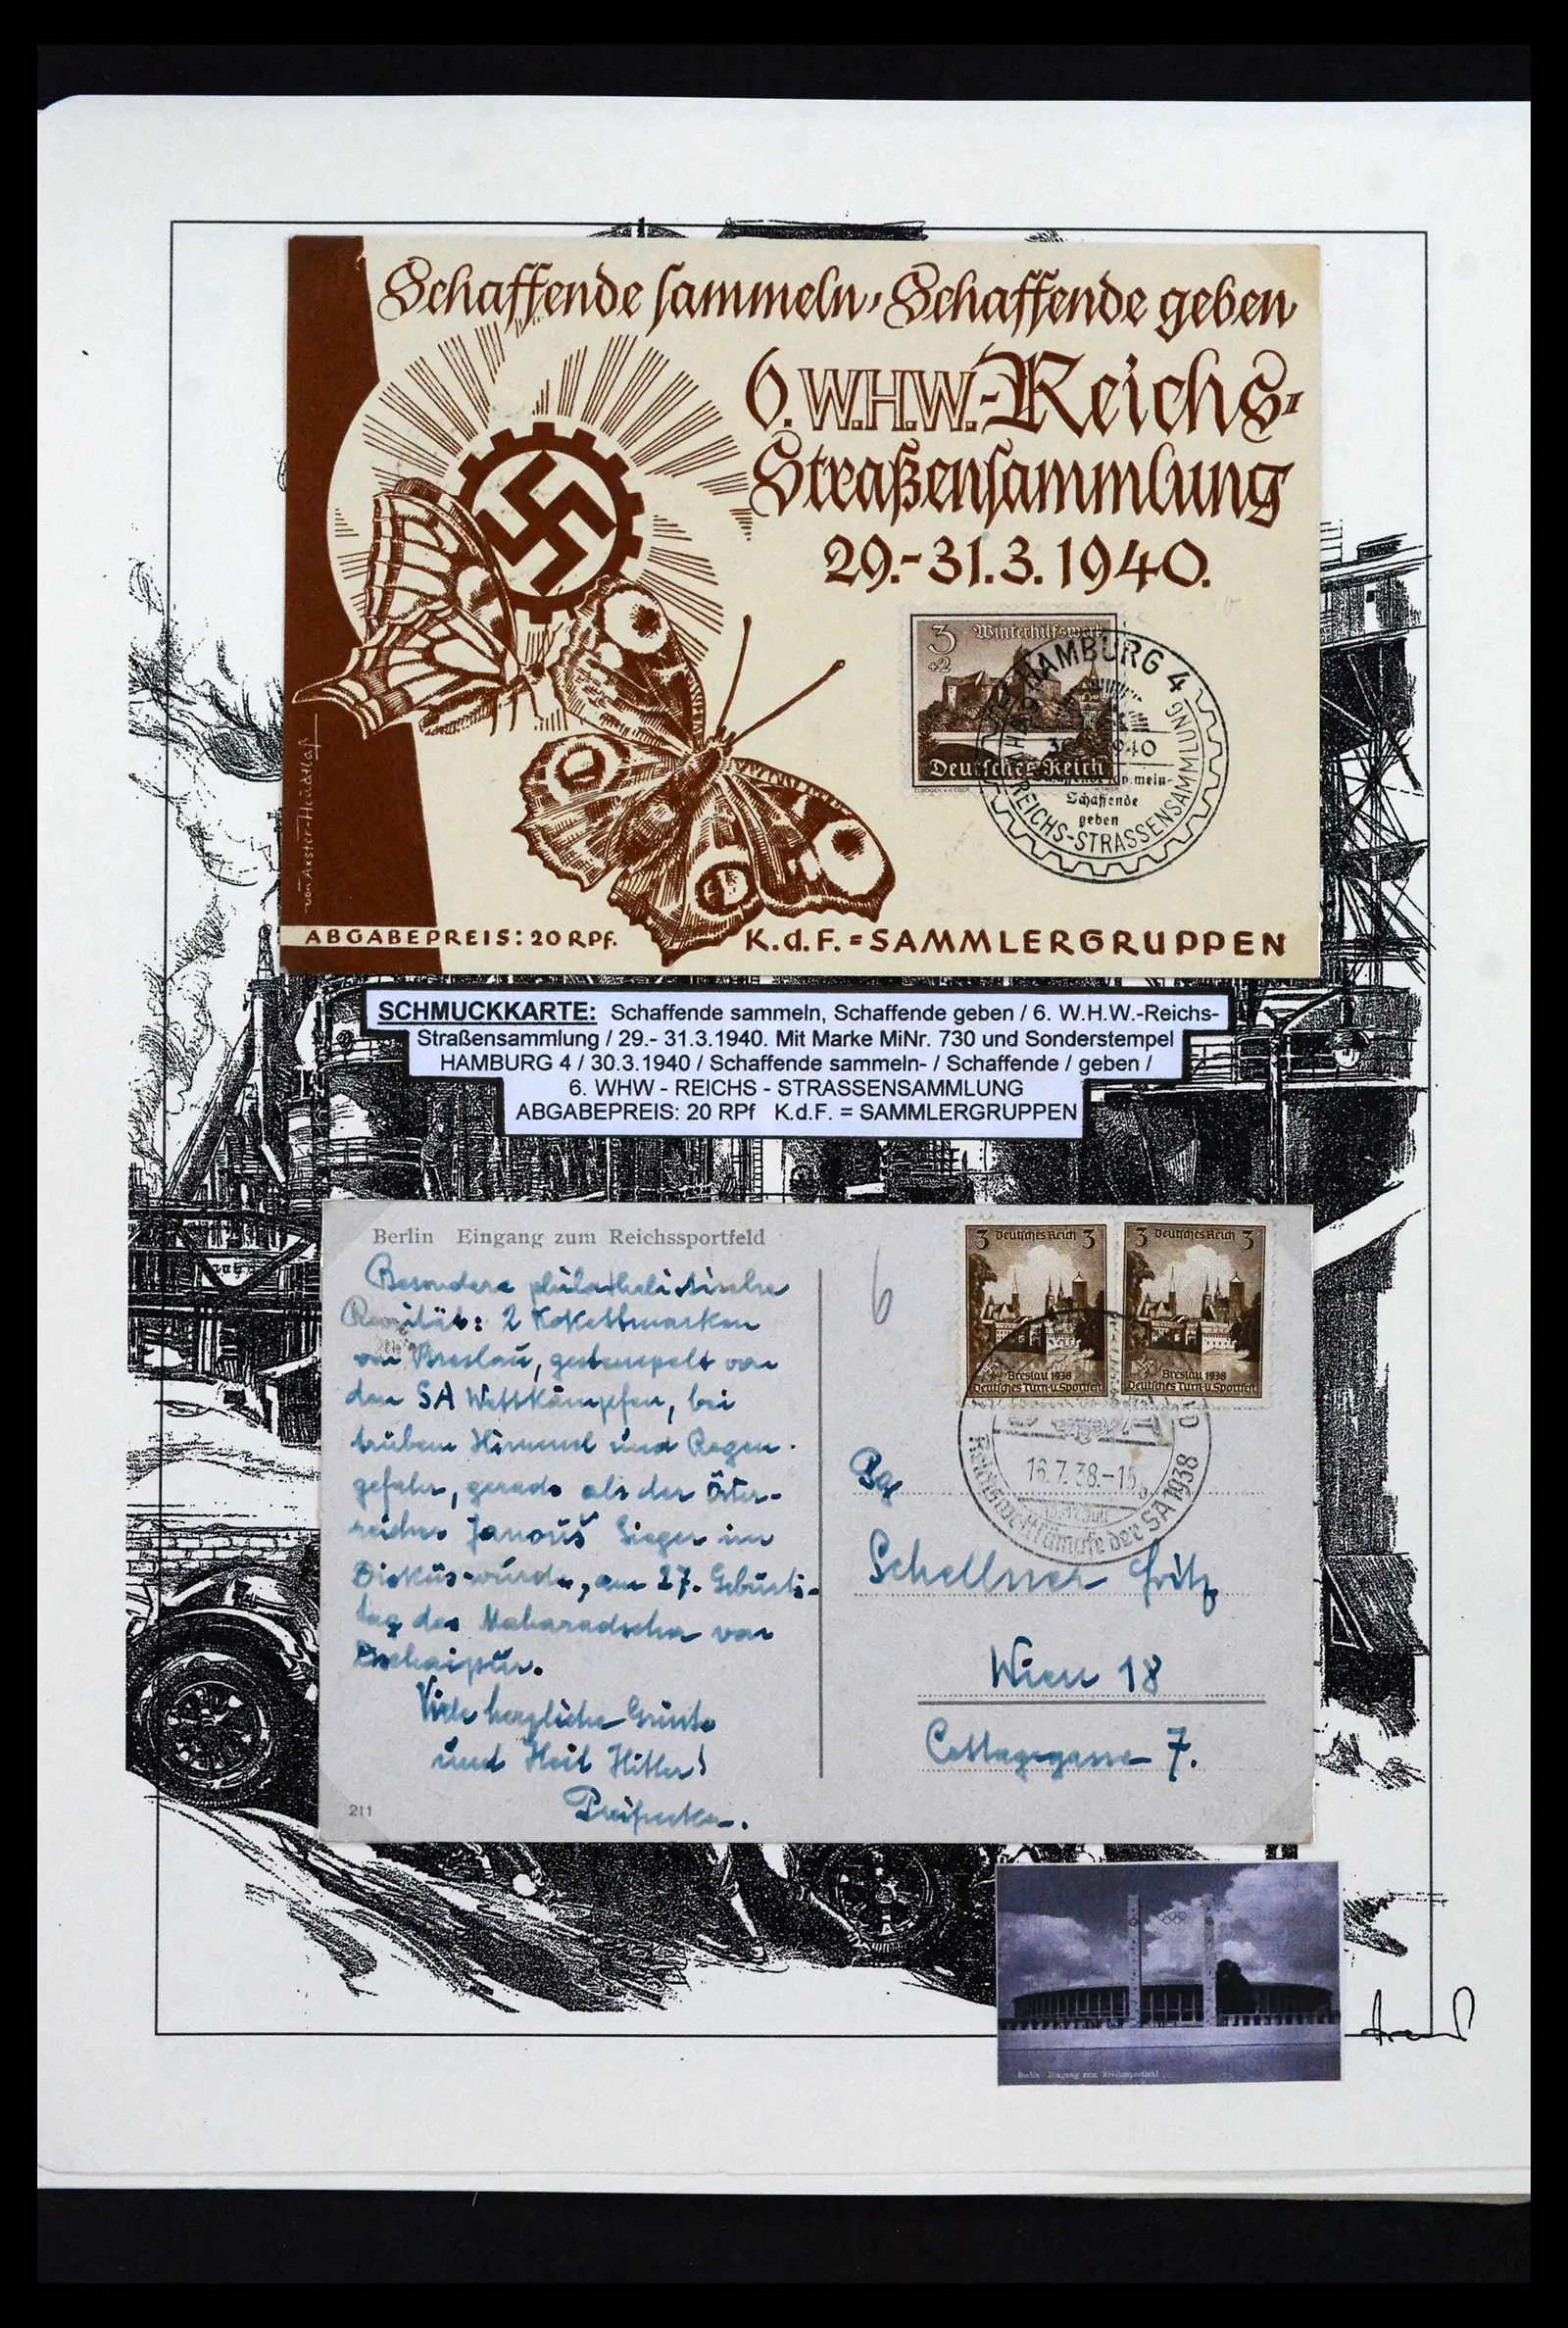 Schaffende sammeln, Schaffende geben
6. W.H.W.-Reichs-
Straßensammlung
29.-31.3.1940.
3 Winterhilfswerk
+2
Deutsches Reich
HAMBURG 4
30.3.1940
Schaffende
geben
REICHS-STRASSENSAMMLUNG
von Axster-Heudtlaß
ABGABEPREIS: 20 RPF.
K.d.F. = SAMMLERGRUPPEN
SCHMUCKKARTE: Schaffende sammeln, Schaffende geben / 6. W.H.W.-Reichs-
Straßensammlung / 29.- 31.3.1940. Mit Marke MiNr. 730 und Sonderstempel
HAMBURG 4 / 30.3.1940 / Schaffende sammeln- / Schaffende / geben /
6. WHW - REICHS - STRASSENSAMMLUNG
ABGABEPREIS: 20 RPf K.d.F. = SAMMLERGRUPPEN
Berlin Eingang zum Reichssportfeld
Besondere philathelistische
Rarität: 2 Kokettmarken
von Breslau, gestempelt von
den SA Wettkämpfen, bei
trübem Himmel und Regen-
gefahr, gerade als der Öster-
reicher Janouš Sieger im
Diskus wurde, am 27. Geburts-
tag des Maharadscha von
Viele herzliche Grüsse
und Heil Hitler!
211
6
3 Deutsches Reich 3
Breslau 1938
Deutsches Turn-u.Sportfest
3 Deutsches Reich 3
Breslau 1938
Deutsches Turn-u.Sportfest
16.7.38.-15
Reichswettkämpfe der SA 1938
Pg
Schellner Fritz
Wien 18
Cottagegasse 7.
Berlin Eingang zum Reichssportfeld